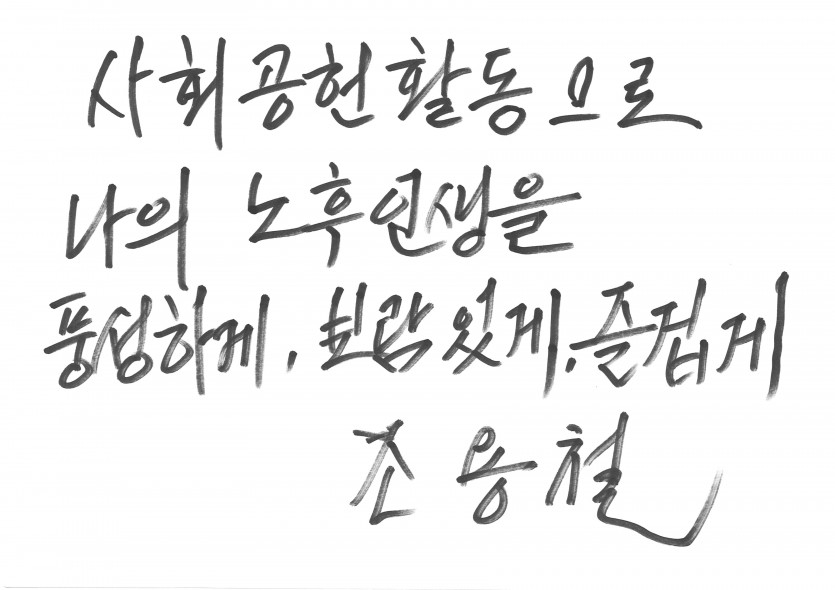 사회공헌활동으로
나의 노후인생을
풍성하게, 보람있게, 즐겁게
조용철